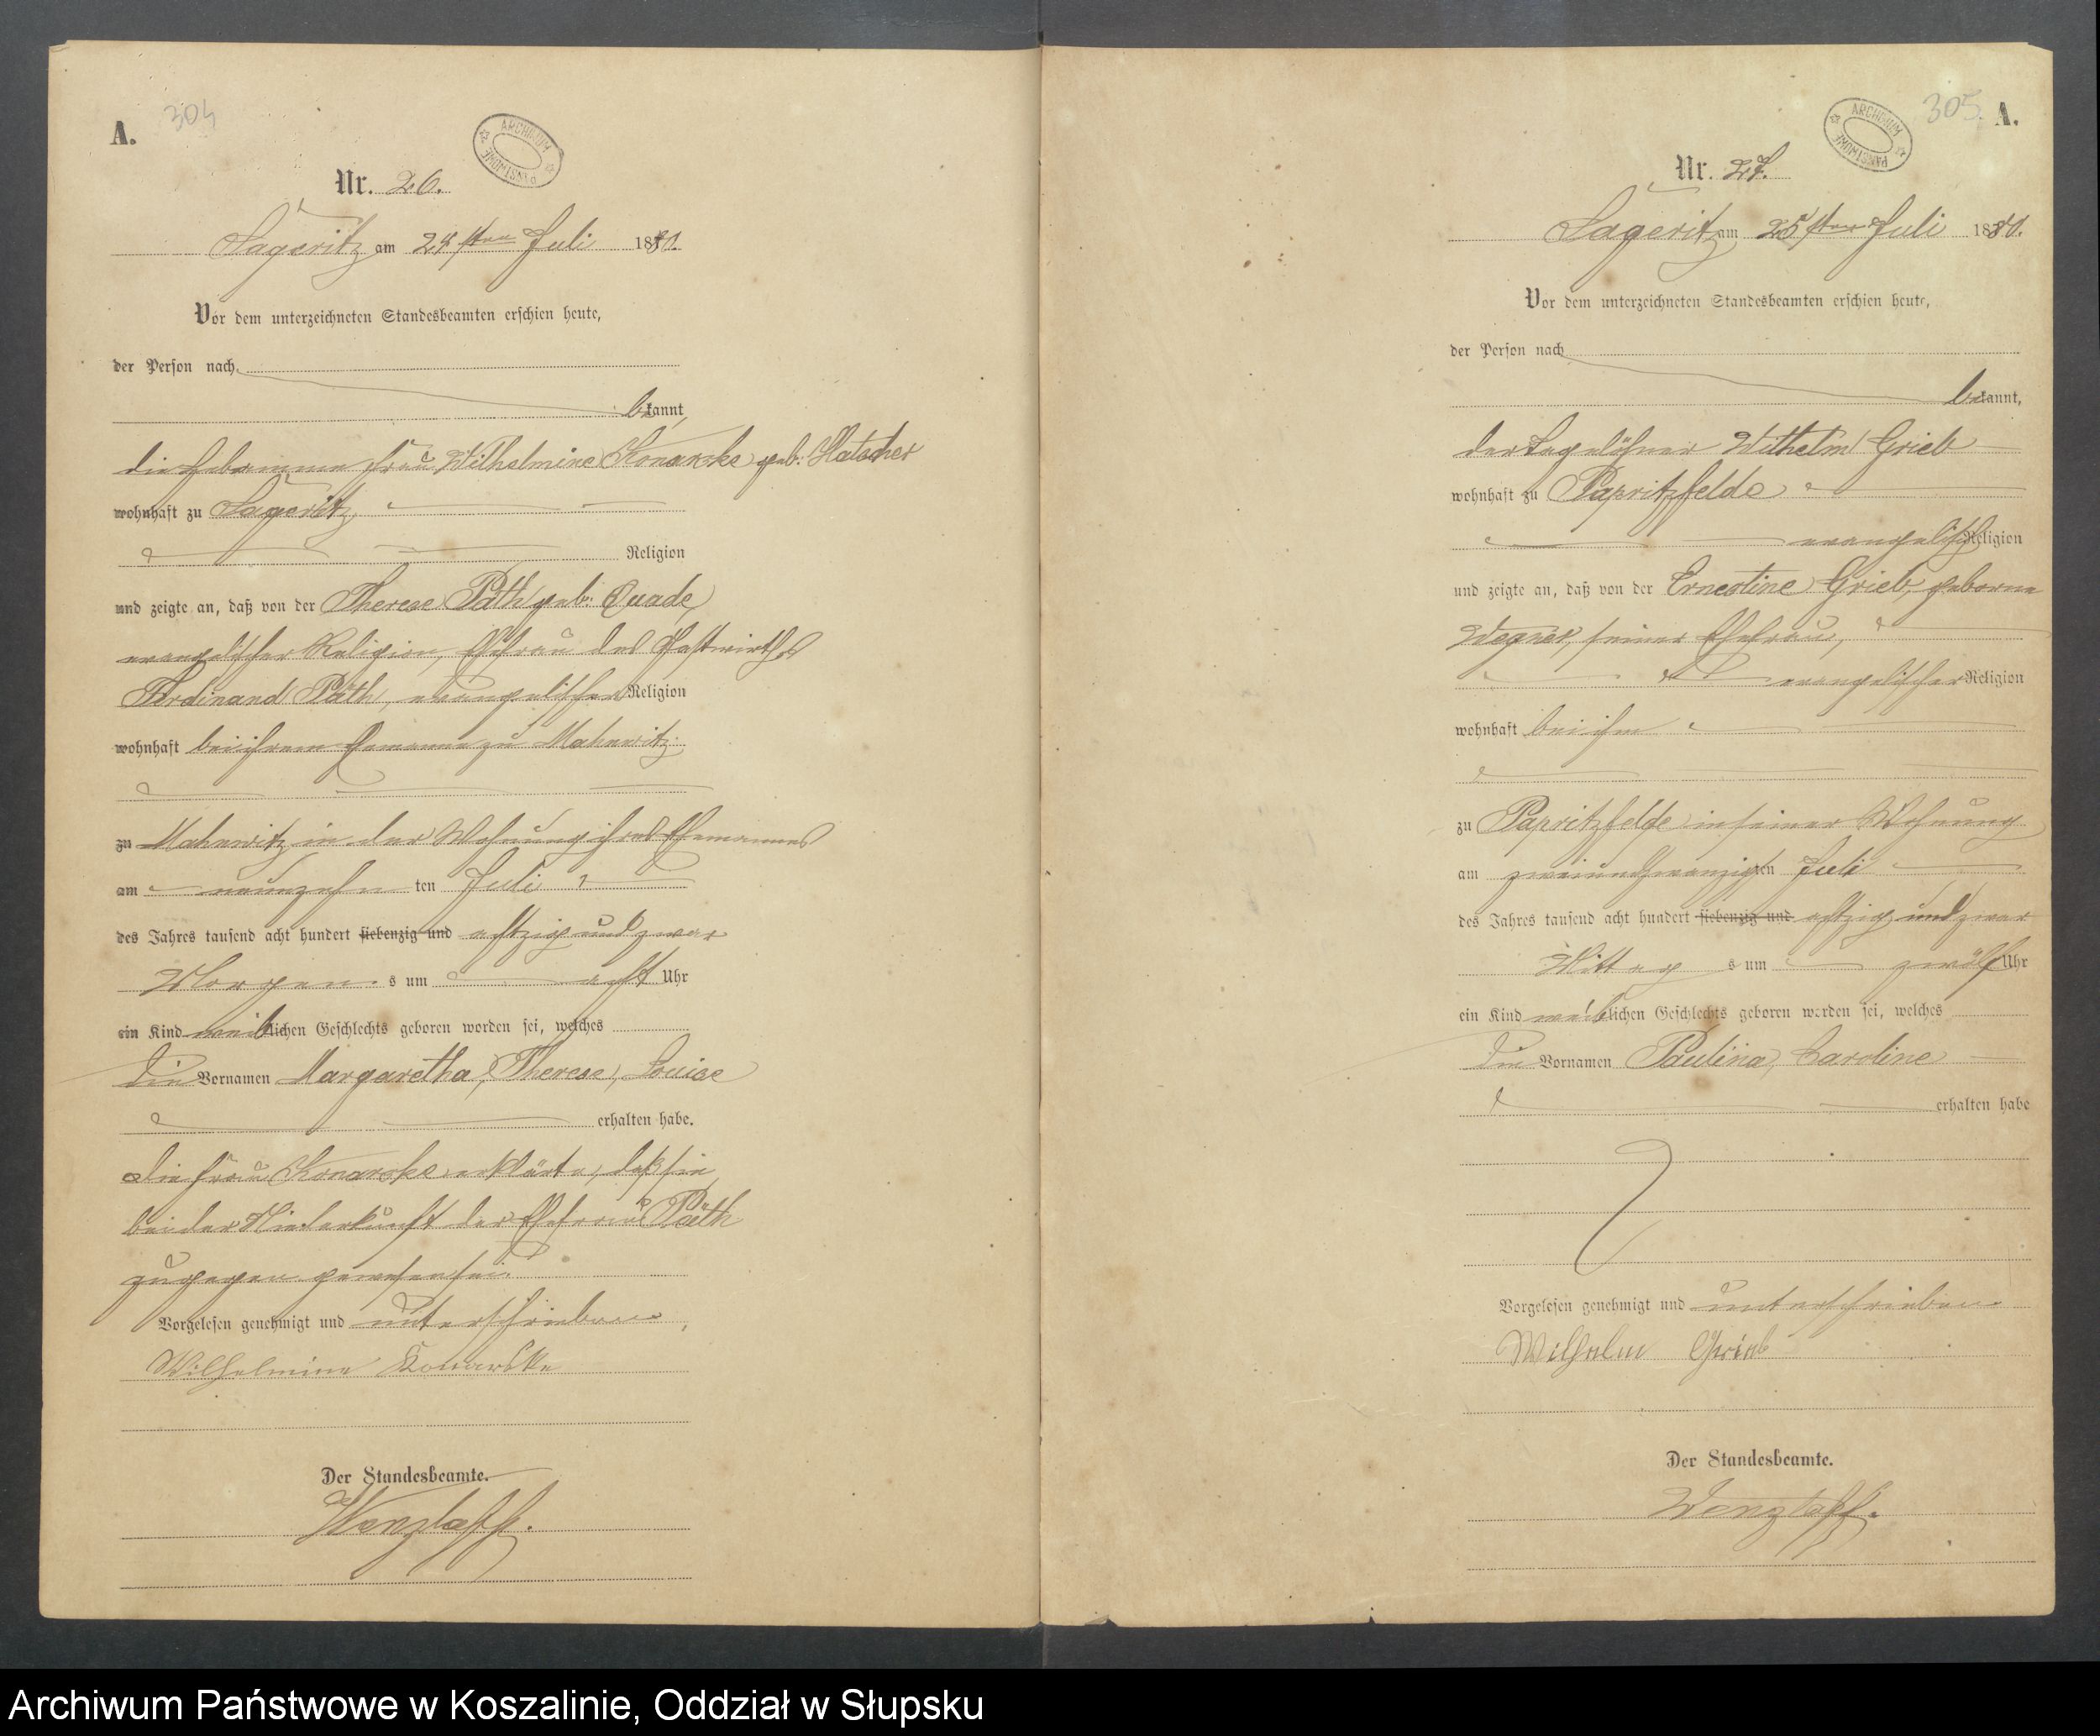 A. 304
ARCHIWUM PAŃSTWOWE
Nr. 26.
Sageritz am 24sten Juli 1880.
Vor dem unterzeichneten Standesbeamten erschien heute,
der Person nach
bekannt,
die Hebamme Frau Wilhelmine Konarske geb.
wohnhaft zu Sageritz
Religion
und zeigte an, daß von der Therese Päth geb. Quade,
evangelischer Religion, Ehefrau des Gastwirthes
Ferdinand Päth, evangelischer Religion
wohnhaft bei ihrem Ehemanne zu Mahnwitz
zu Mahnwitz in der Wohnung ihres Ehemannes
am neunzehnten Juli
des Jahres tausend acht hundert siebenzig und achtzig und zwar
Morgens um acht Uhr
ein Kind weiblichen Geschlechts geboren worden sei, welches
die Vornamen Margaretha, Therese, Louise
erhalten habe.
die Frau Konarske erklärte, daß sie
bei der Niederkunft der Ehefrau Päth
zugegen gewesen sei.
Vorgelesen genehmigt und unterschrieben
Wilhelmine Konarske
Der Standesbeamte.
Wenzlaff.
305. A.
ARCHIWUM PAŃSTWOWE
Nr. 27.
Sageritz am 25sten Juli 1880.
Vor dem unterzeichneten Standesbeamten erschien heute,
der Person nach
bekannt,
der Tagelöhner Wilhelm Grieb
wohnhaft zu Papritzfelde
evangelisch Religion
und zeigte an, daß von der Ernestine Grieb, geborne
Wegner, seiner Ehefrau,
evangelischer Religion
wohnhaft bei ihm
zu Papritzfelde in seiner Wohnung
am zweiundzwanzigten Juli
des Jahres tausend acht hundert siebenzig und achtzig und zwar
Mittag s um zwölf Uhr
ein Kind weiblichen Geschlechts geboren worden sei, welches
die Vornamen Paulina, Caroline
erhalten habe
Vorgelesen genehmigt und unterschrieben
Wilhelm Grieb
Der Standesbeamte.
Wenzlaff.
Archiwum Państwowe w Koszalinie, Oddział w Słupsku